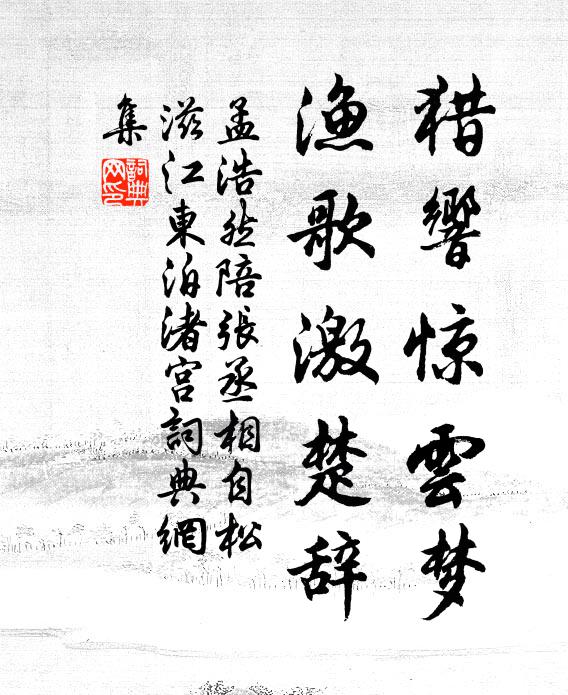 猎響惊雲梦
渔歌激楚辞
孟浩然陪張丞相自松
滋江東泊渚宫詞典網
集
詞典网印